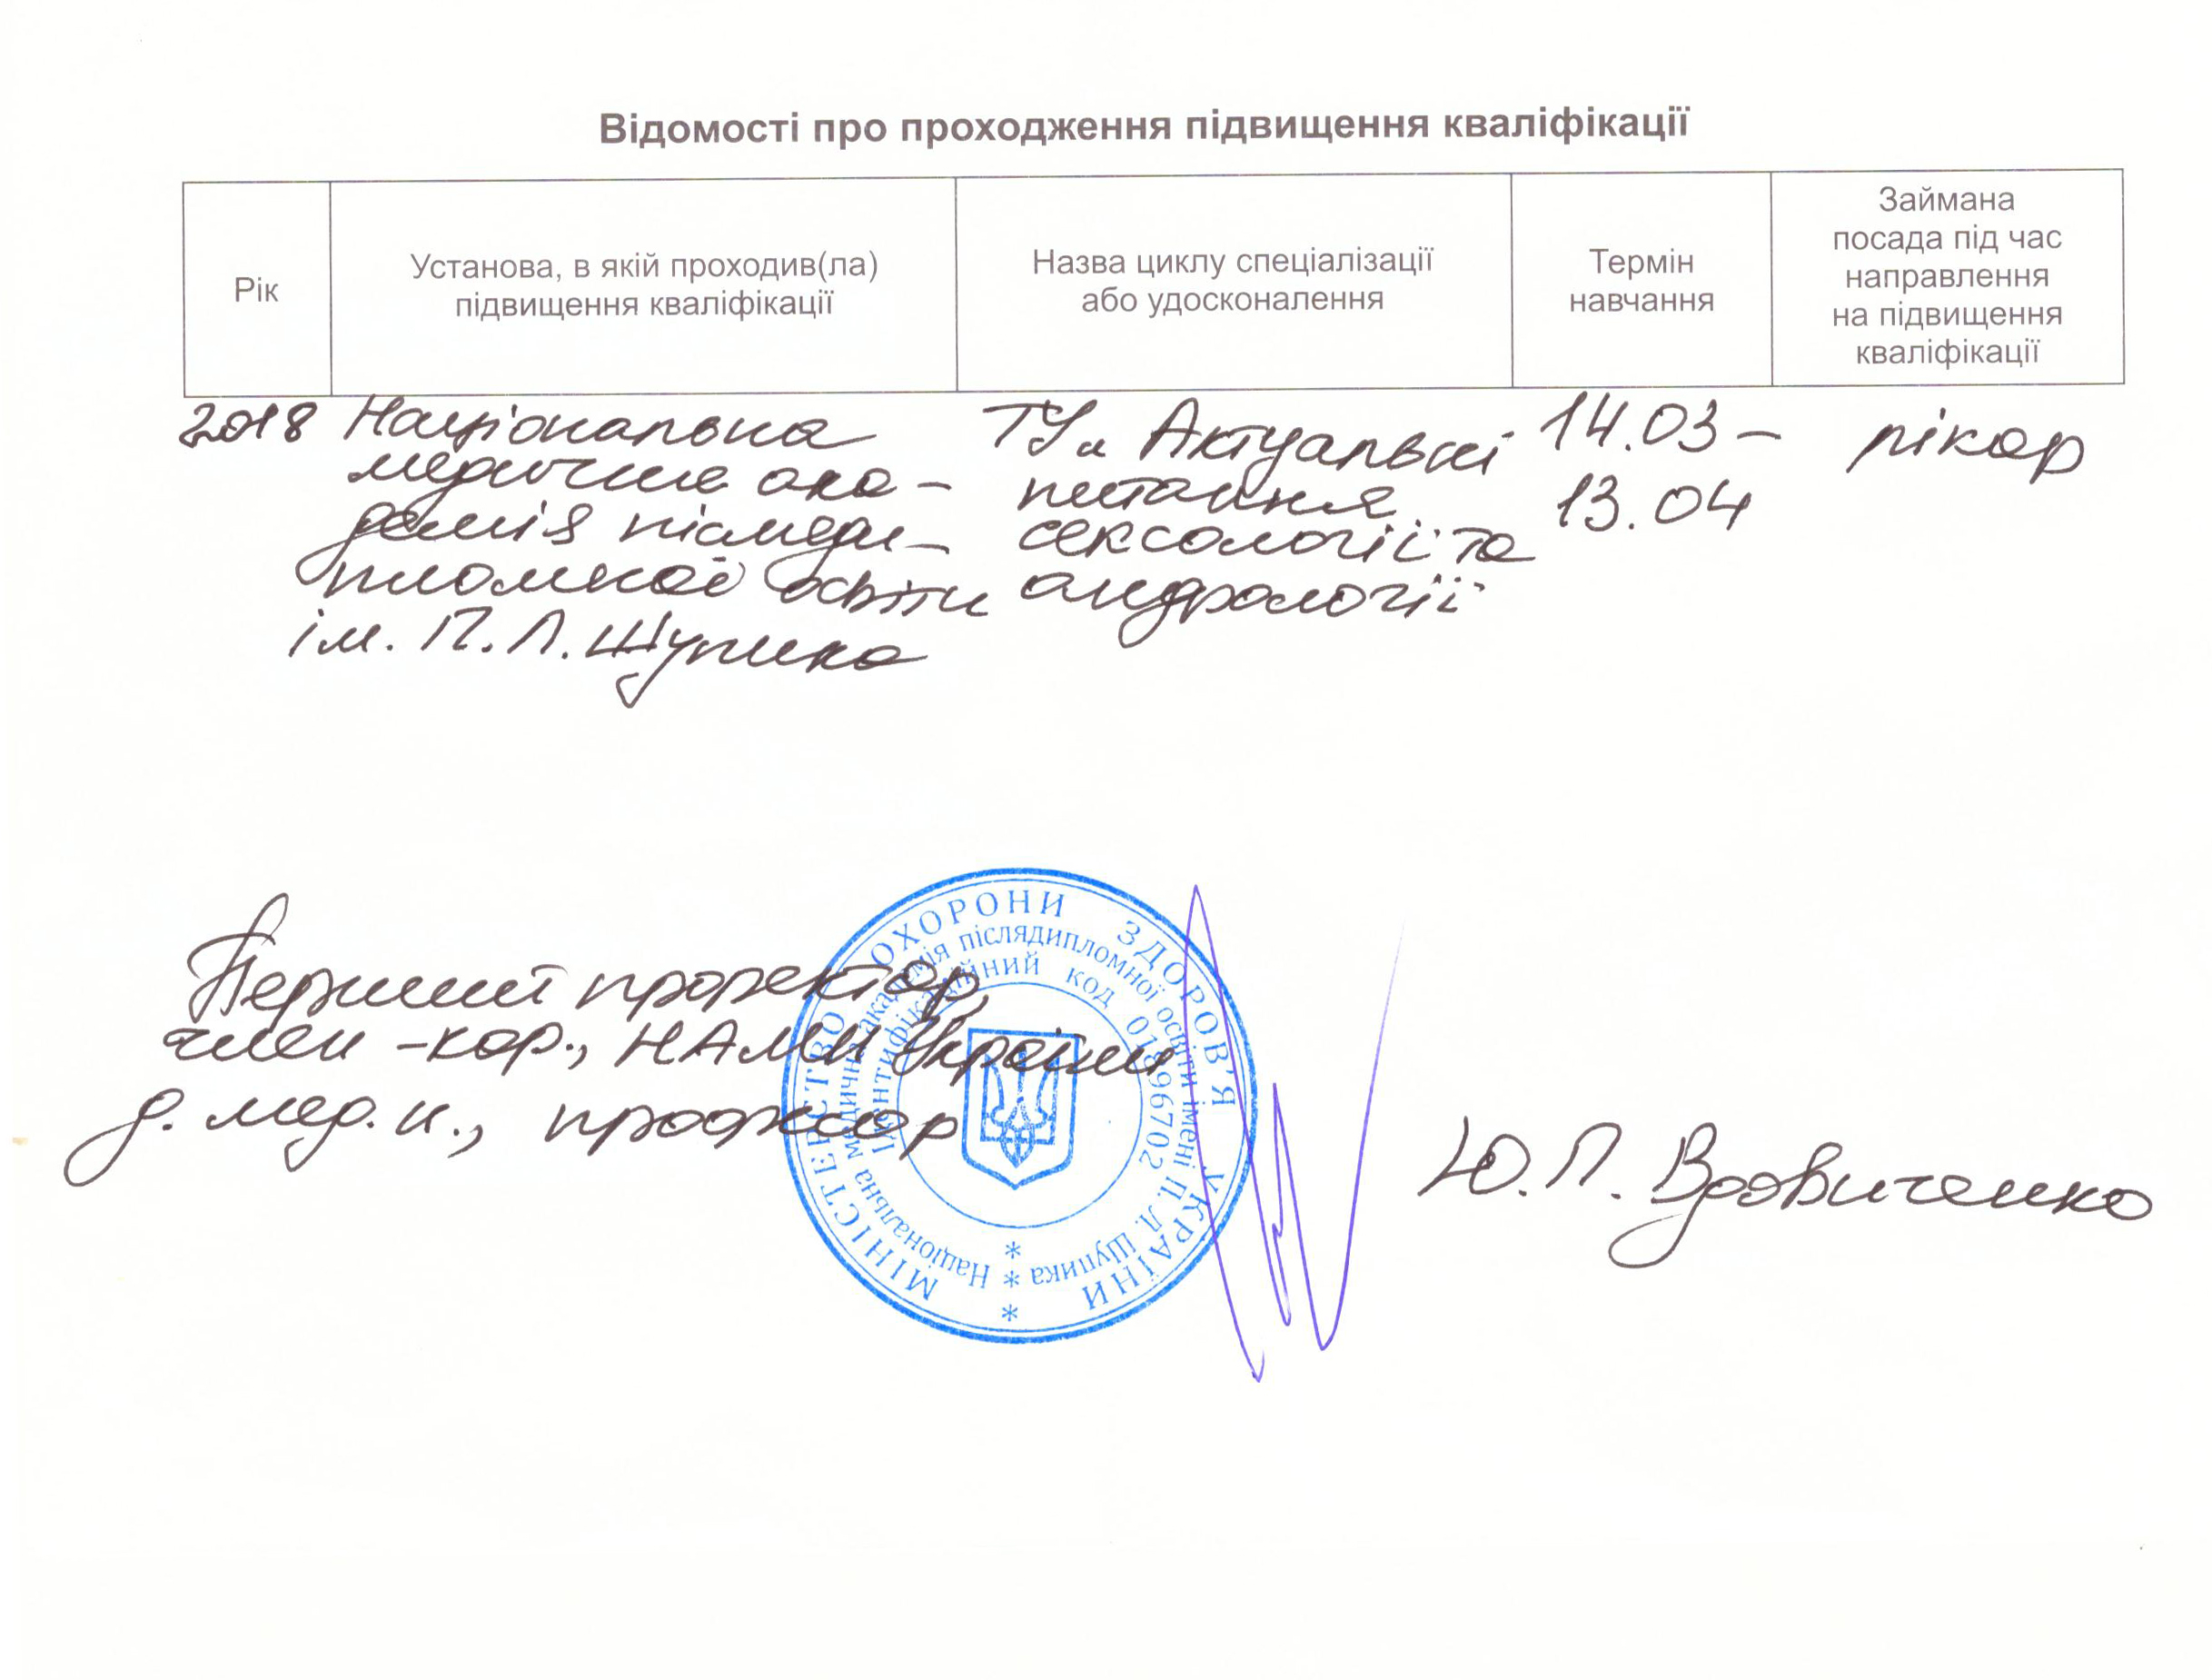 Відомості про проходження підвищення кваліфікації
Рік
Установа, в якій проходив(ла)
підвищення кваліфікації
Назва циклу спеціалізації
або удосконалення
Термін
навчання
Займана
посада під час
направлення
на підвищення
кваліфікації
2018
Національна
медична ака-
демія післяди-
пломної освіти
ім. П.Л. Шупика
ТУ „ Актуальні
питання
сексології та
андрології
14.03 –
13.04
лікар
Перший проректор,
член-кор., НАМН України
д. мед. н., професор
Ю.П. Вдовиченко
МІНІСТЕРСТВО ОХОРОНИ ЗДОРОВ'Я УКРАЇНИ *
Національна медична академія післядипломної освіти імені П.Л. Шупика *
Ідентифікаційний код 01896702 *